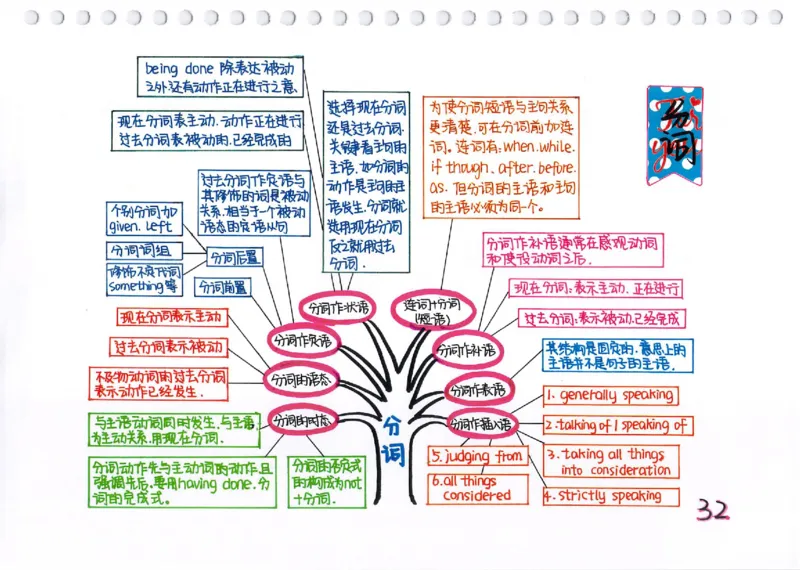 being done 除表达被动
之外还有动作正在进行之意
现在分词表主动、动作正在进行
过去分词表被动的、已经完成的
选择现在分词
还是过去分词,
关键看主句的
主语,如分词的
动作是主句的主
语发生,分词就
选用现在分词
反之就用过去
分词.
为使分词短语与主句关系
更清楚,可在分词前加连
词。连词有:when、while、
if though、after、before、
as. 但分词的主语和主句
的主语必须为同一个。
分词
过去分词作定语与
其修饰的词是被动
关系,相当于一个被动
语态的定语从句
个别分词如
given、left
分词词组
修饰不定代词
something等
分词后置
分词前置
分词作状语
连词+分词
(短语)
分词作补语通常在感观动词
和使役动词之后.
现在分词:表示主动、正在进行
过去分词:表示被动、已经完成
分词作定语
分词作补语
现在分词表示主动
过去分词表示被动
不及物动词的过去分词
表示动作已经发生.
分词的语态
分词作表语
其结构是固定的,意思上的
主语并不是句子的主语.
分词的时态
分词作插入语
与主语动词同时发生,与主语
为主动关系,用现在分词.
分词动作先与主动词的动作,且
强调先后,要用having done.分
词的完成式。
分词的否定式
的构成为not
+分词.
分词
1. generally speaking
2. talking of / speaking of
3. taking all things
into consideration
4. strictly speaking
5. judging from
6. all things
considered
32